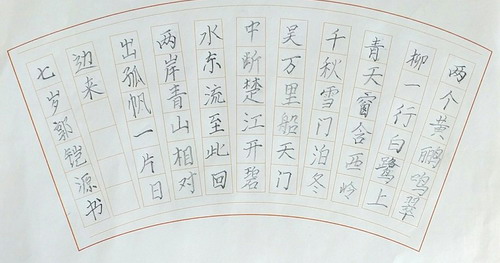 两个黄鹂鸣翠
柳一行白鹭上
青天窗含西岭
千秋雪门泊东
吴万里船天门
中断楚江开碧
水东流至此回
两岸青山相对
出孤帆一片日
边来
七岁郭铠源书